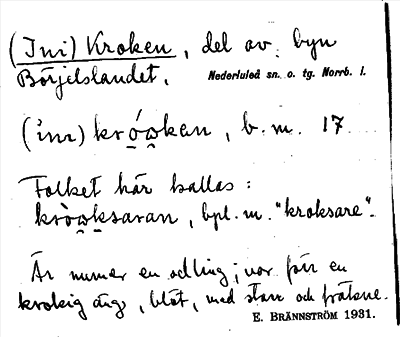 (Ini) Kroken, del av byn
Börjelslandet. Nederluleå sn. o. tg. Norrb. l.
(inı) krówkan, b. m. 17
Folket här kallas:
kròwksaran, bpl. m. "kroksare".
Är numer en odling; var förr en
krokig äng, blöt, med starr och fräkne.
E. BRÄNNSTRÖM 1931.